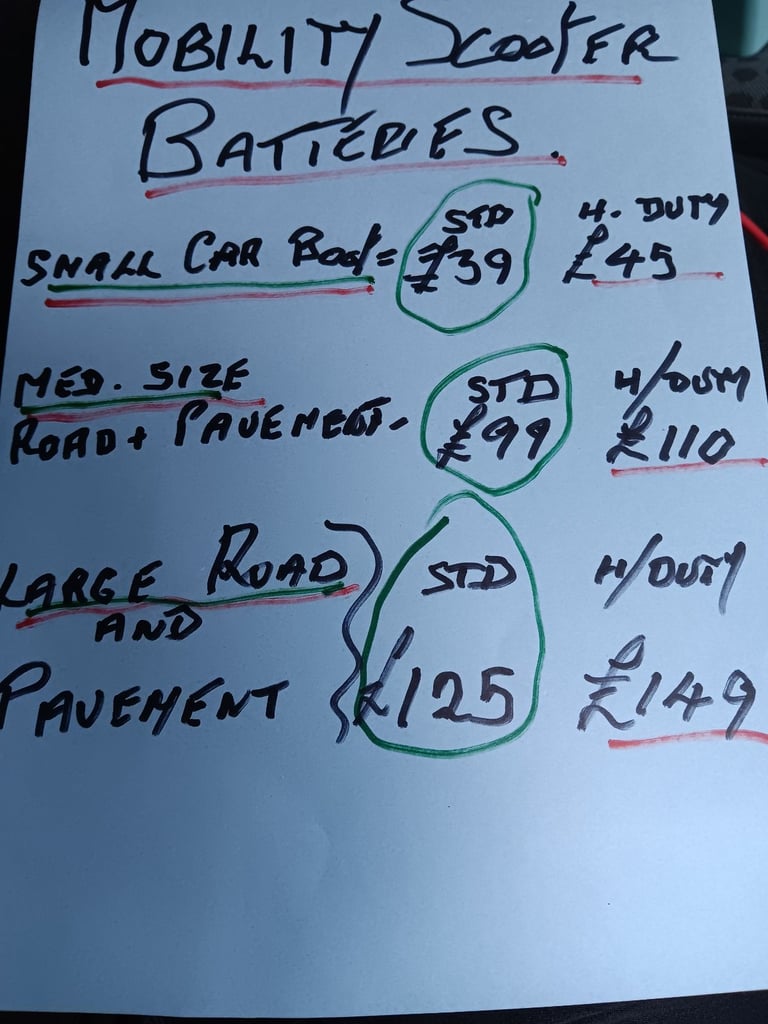 MOBILITY SCOOTER
BATTERIES.
STD H. DUTY
SMALL CAR BOOT = £39 £45
MED. SIZE STD H/DUTY
ROAD + PAVEMENT - £99 £110
LARGE ROAD STD H/DUTY
AND
PAVEMENT £125 £149